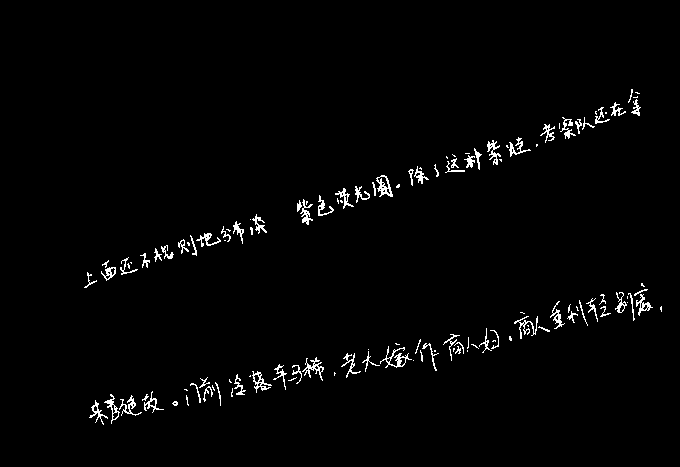 上面还不规则地分布淡 紫色荧光圈。除了这种紫蛙,考察队还在拿
来彦绝故。门前冷落车马稀,老大嫁作商人妇。商人重利轻别离,